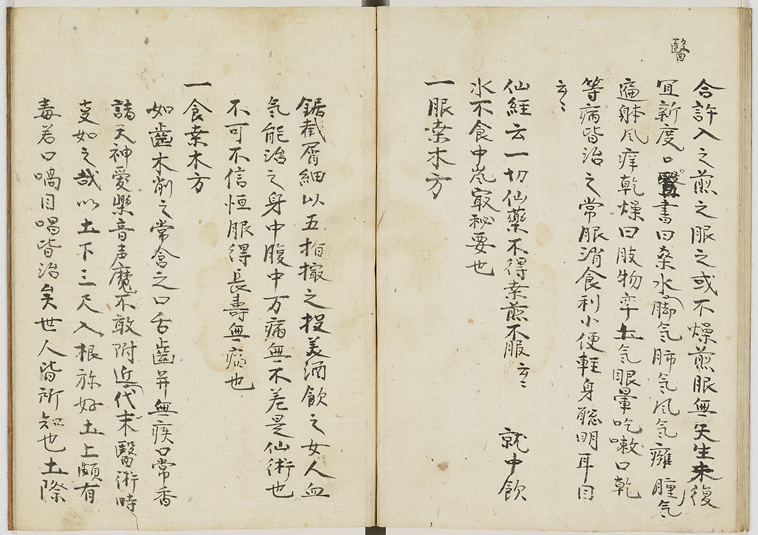 醫
合許入之煎之服之或不燥煎服無失生未復
宜新渡口醫書曰桑水脚氣肺氣風氣癰腫氣
遍躰風痒乾燥曰肢物卒土氣眼暈吃嗽口乾
等病皆治之常服消食利小便軽身聡明耳目
云々
仙経云一切仙藥不得桑煎不服云々 就中飲
水不食中風最秘要也
一服桑木方
鋸截屑細以五指撮之投美酒飲之女人血
氣能治之身中腹中万病無不差是仙術也
不可不信恒服得長壽無病也
一食桑木方
如歯木削之常含之口舌歯并無疾口常香
諸天神愛樂音声魔不敢附近代末醫術時
支如之哉以土下三尺入根弥好土上頗有
毒若口喎目喎皆治矣世人皆所知也土際